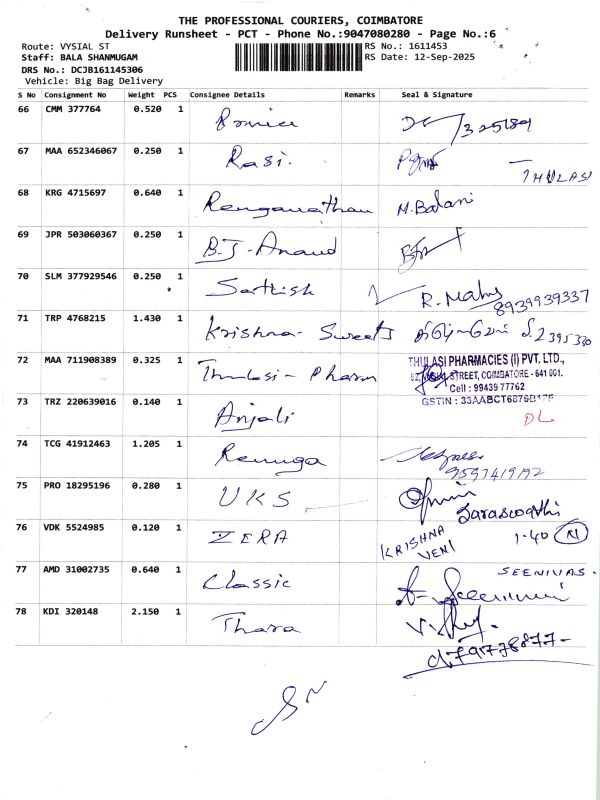 THE PROFESSIONAL COURIERS, COIMBATORE
Delivery Runsheet - PCT - Phone No.:9047080280 - Page No.:6
Route: VYSIAL ST
RS No.: 1611453
Staff: BALA SHANMUGAM
RS Date: 12-Sep-2025
DRS No.: DCJB161145306
Vehicle: Big Bag Delivery
S No Consignment No Weight PCS Consignee Details Remarks Seal & Signature
66 CMM 377764 0.520 1
67 MAA 652346067 0.250 1 Rasi.
THULASI
68 KRG 4715697 0.640 1 Renganathan M.Balani
69 JPR 503060367 0.250 1 B.J-Anand
70 SLM 377929546 0.250 1 Sathish
8939939337
71 TRP 4768215 1.430 1 Krishna Sweets
72 MAA 711908389 0.325 1 Thulasi - Pharm
THULASI PHARMACIES (I) PVT. LTD.,
STREET, COIMBATORE - 641 001.
Cell : 99439 77762
GSTIN : 33AABCT6876B1
73 TRZ 220639016 0.140 1 Anjali
DL
74 TCG 41912463 1.205 1 Renuga
75 PRO 18295196 0.280 1 UKS
Saraswathi
76 VDK 5524985 0.120 1 ZERA KRISHNA VENI 1.40 N
77 AMD 31002735 0.640 1 Classic
SEENIVAS.
78 KDI 320148 2.150 1 Thara